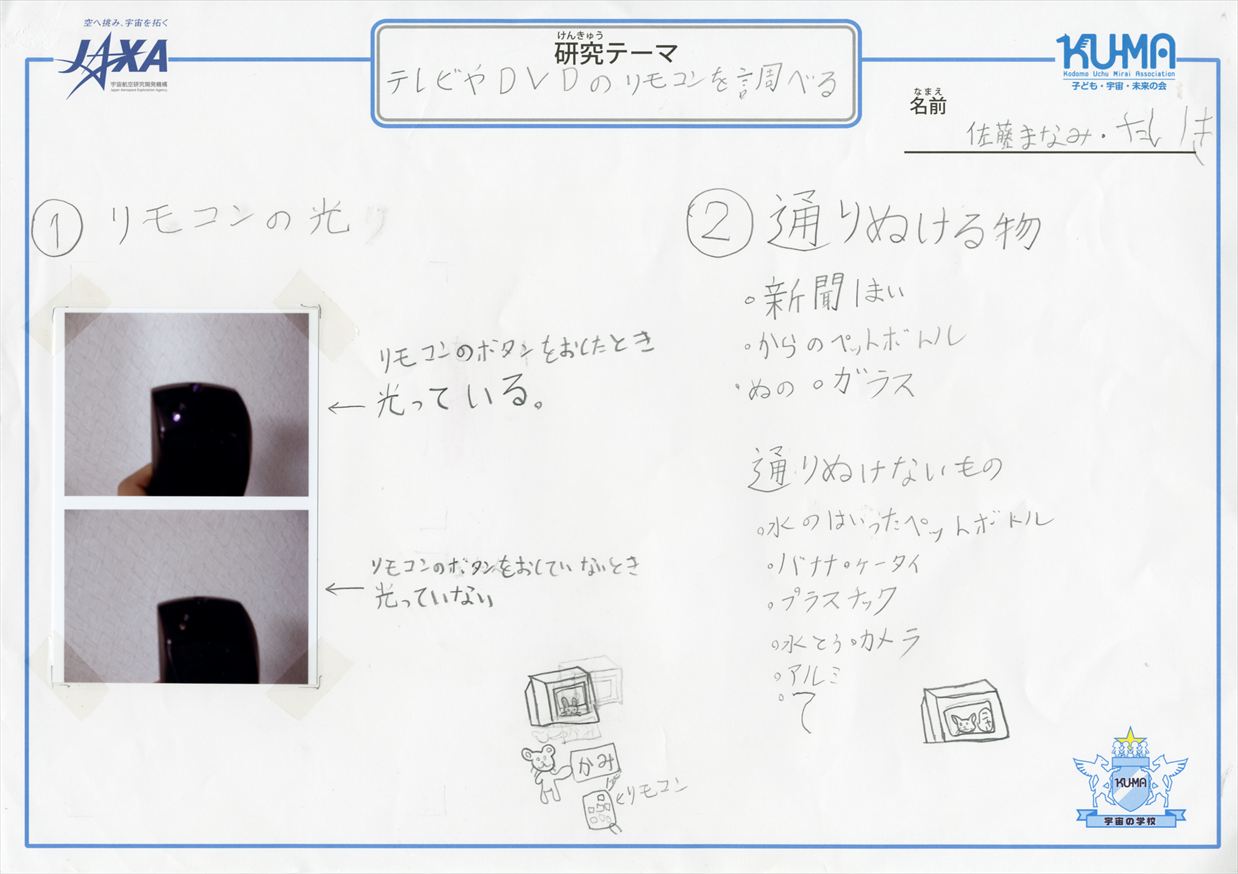 空へ挑み、宇宙を拓く
JAXA
宇宙航空研究開発機構
Japan Aerospace Exploration Agency
けんきゅう
研究テーマ
テレビやDVDのリモコンを調べる
KU-MA
Kodomo Uchu Mirai Association
子ども・宇宙・未来の会
なまえ
名前
佐藤まなみ・
① リモコンの光
リモコンのボタンをおしたとき
光っている。
リモコンのボタンをおしていないとき
光っていない
かみ
リモコン
② 通りぬける物
・新聞
・からのペットボトル
・ぬの ・ガラス
通りぬけないもの
・水のはいったペットボトル
・バナナ・ケータイ
・プラスチック
・水とう・カメラ
・アルミ
・て
KU-MA
宇宙の学校